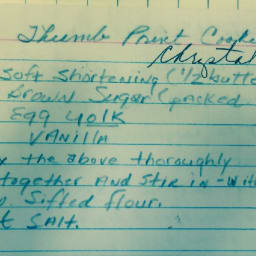 Thumb Print Cookie
Chrystal
Soft Shortening (1/2 butte
Brown Sugar (packed
Egg yolk
VANillA
the above thoroughly
together And Stir in - Wit
Sifted flour.
SAlt.